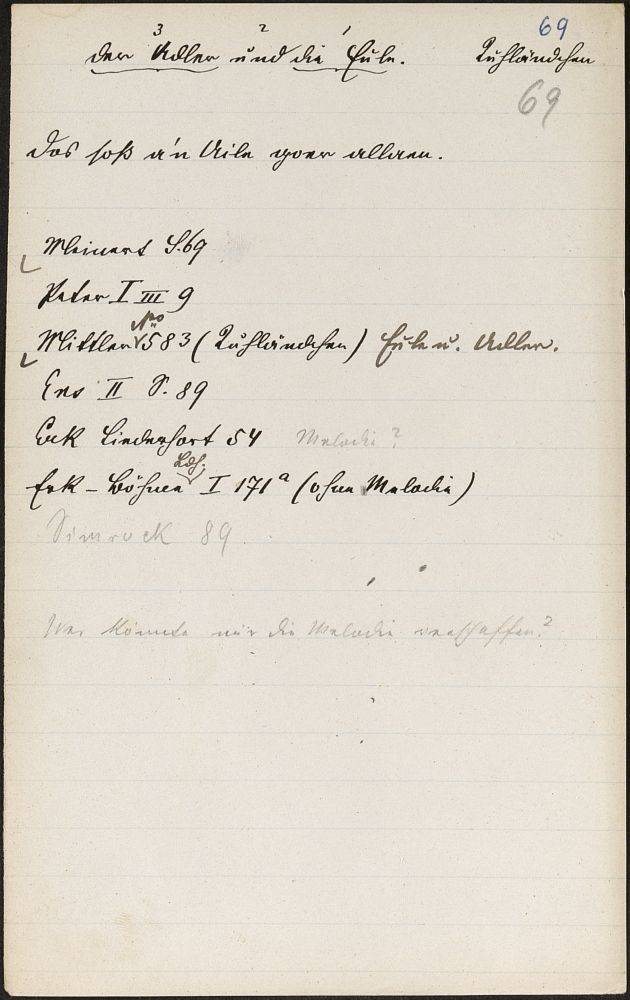 69
3 2 1
Der Adler und die Eule. Kuhländchen
69
Das soß a'n Aile goer allaen.
Meinert S. 69
Peter I III 9
No
Mittler 583 (Kuhländchen) Eule u. Adler.
Ens II S. 89
Erk Liederhort 54 Melodie?
Ldh.
Erk – Böhme I 171a (ohne Melodie)
Simrock 89
Wer könnte mir die Melodie verschaffen?